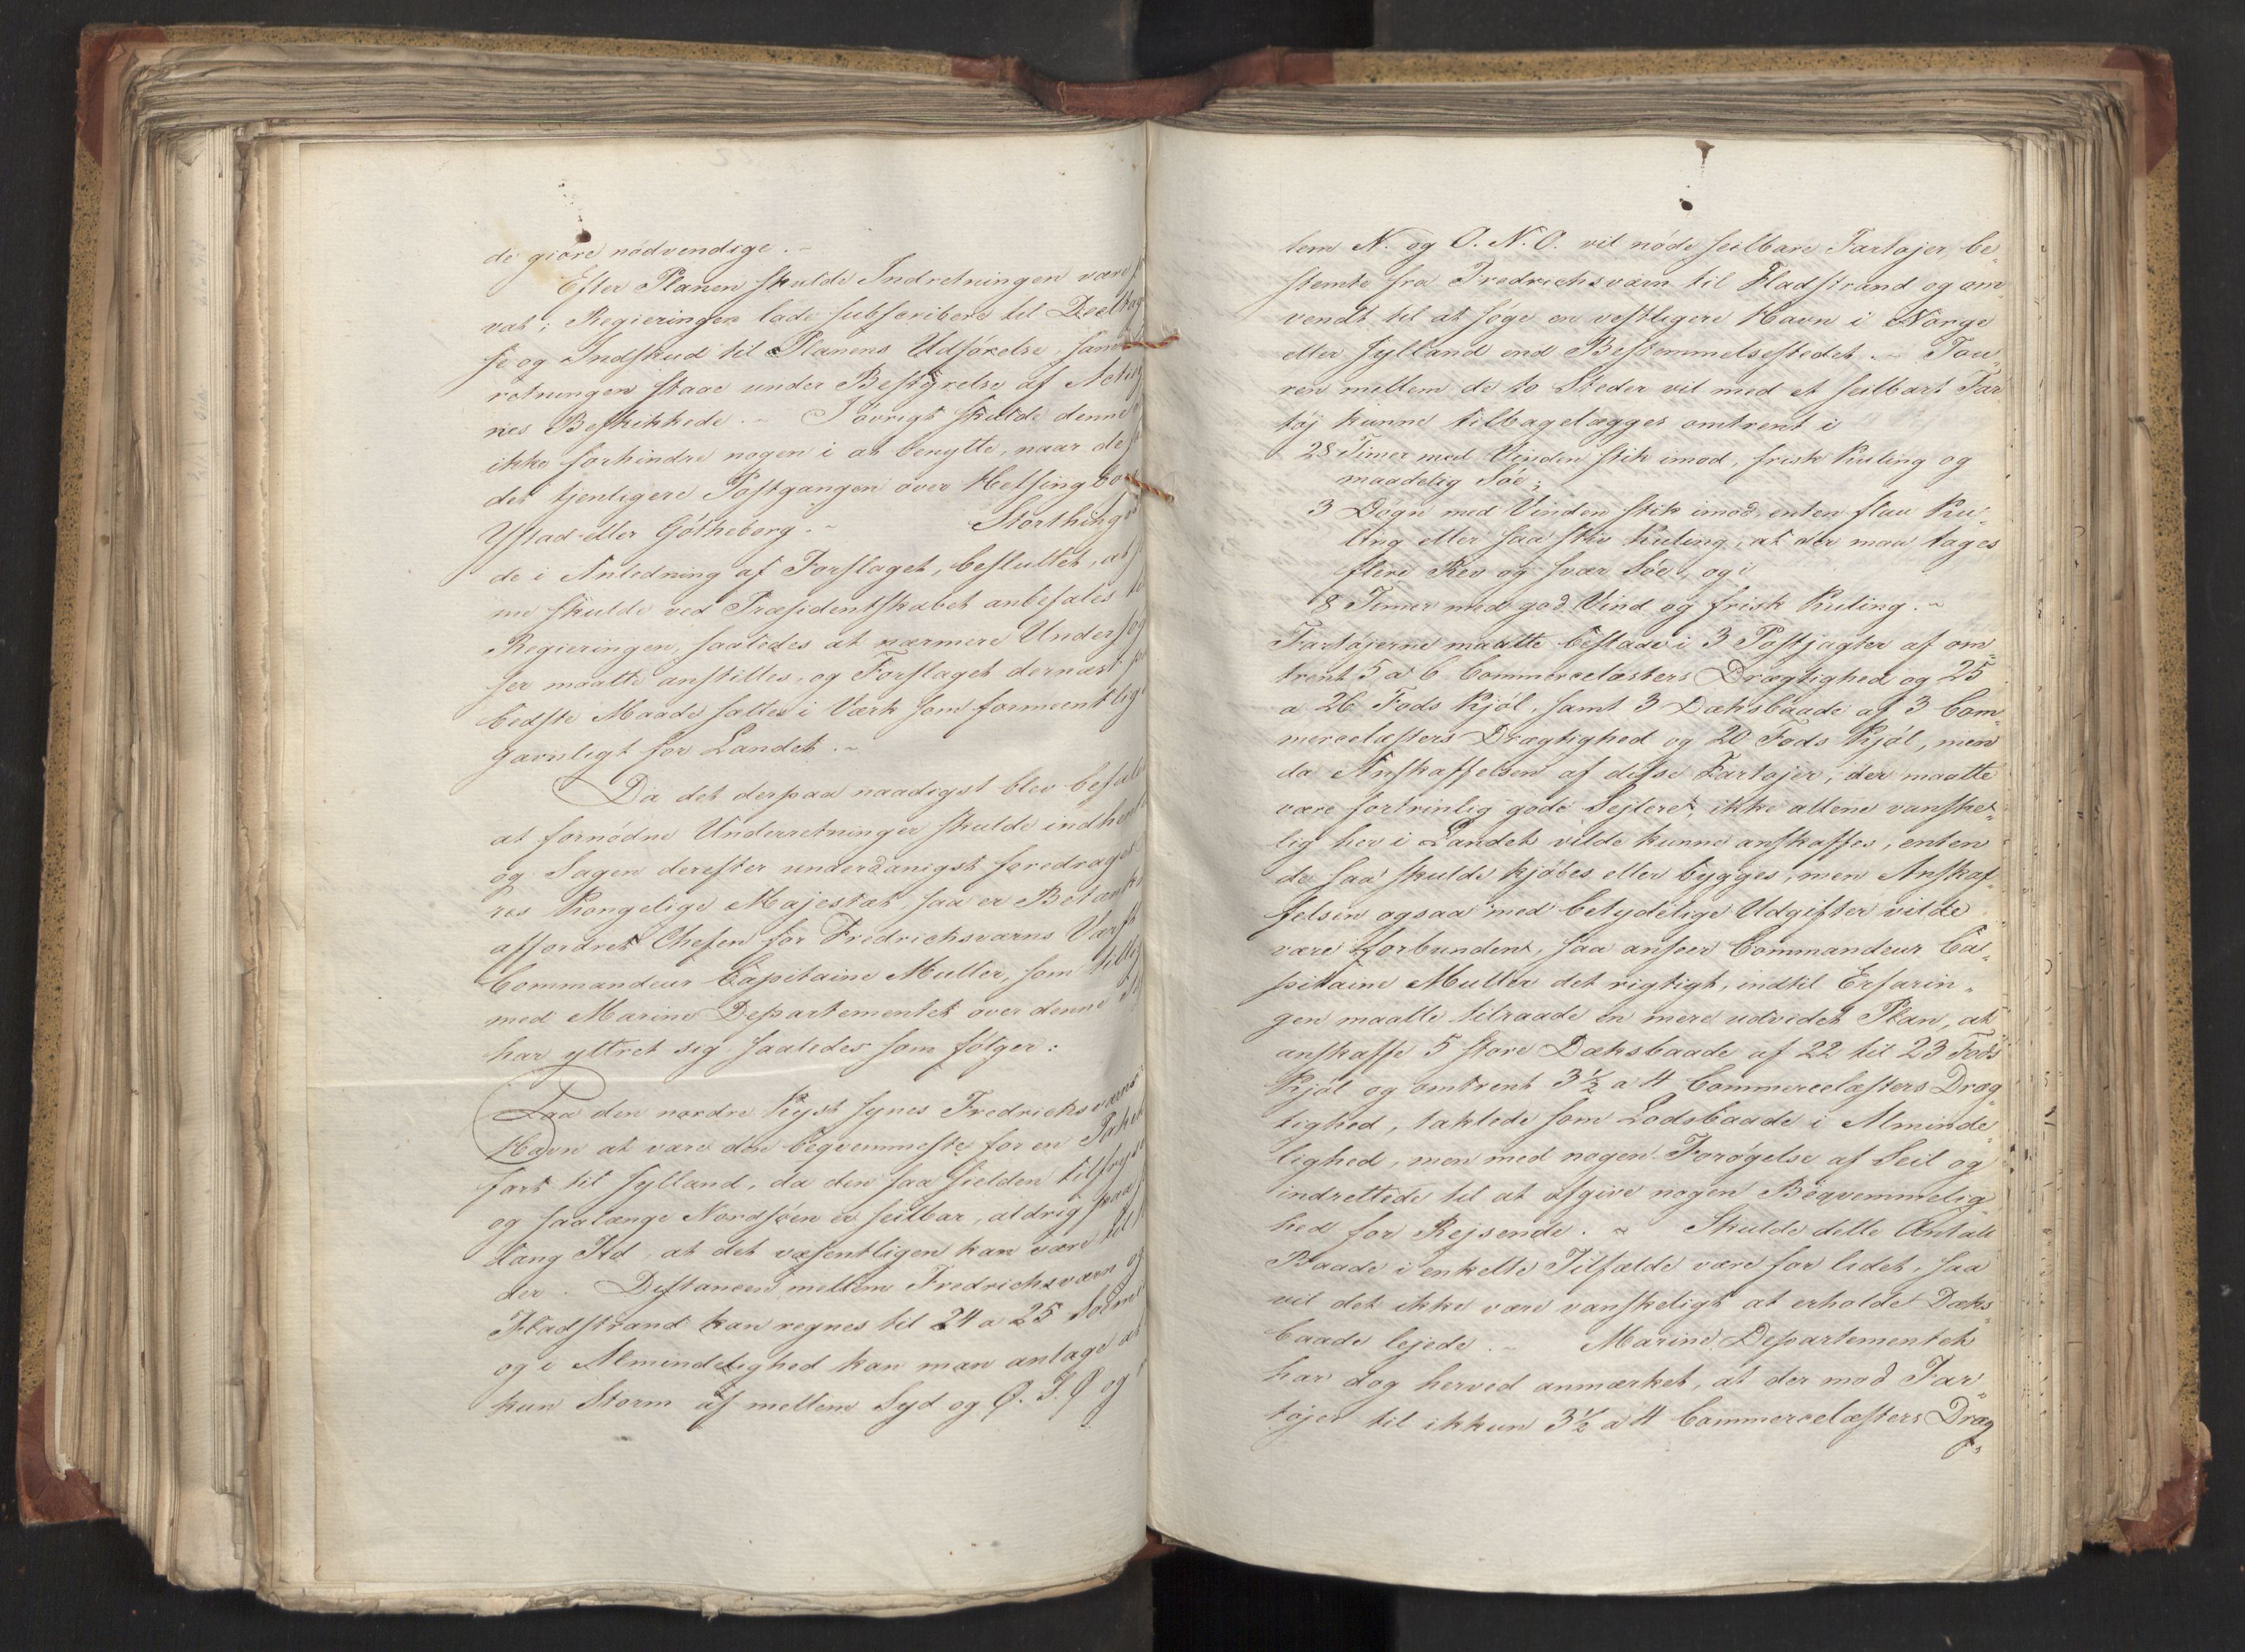 de giøre nødvendige. ~
Efter Planen skulde Indretningen være
vat; Regieringen lade subscribere til Deeltag
se og Indskud til Planens Udførelse, samt
retningen staae under Bestyrelse af Actio
nes Beskikkede. ~ I øvrigt skulde denne
ikke forhindre nogen i at benytte, naar de
det tjenligere Postgangen over Helsingbor
Ystad eller Gøtheborg. ~ Storthing
de i Anledning af Forslaget, besluttet, at
ne skulde ved Præsidentskabet anbefales
Regieringen, saaledes at nærmere Undersøg
ser maatte anstilles, og Forslaget dernæst
bedste Maade sættes i Værk som formeentlig
gavnligt for Landet. ~
Da det derpaa naadigst blev befal
at fornødne Underretninger skulde indhent
og Sagen derefter underdanigst foredrages
res Kongelige Majestæt, saa er Betænk
affordret Chefen for Fredrichsværns Værft
Commandeur Capitaine Muller, som tillig
med Marine Departementet over denne
har yttret sig saaledes som følger:
Paa den nordre Kyst synes Fredrichsværns
Havn at være den beqvemmeste for en Paket
fart til Jylland, da den saa sielden tilfryse
og saalænge Nordsøen er seilbar, aldrig paa
lang Tid, at det væsentligen kan være til
der. Distancen mellem Fredrichsværn og
Fladstrand kan regnes til 24 a 25 Sømi
og i Almindelighed kan man antage at
kun Storm af mellem Syd og O. S. O og
lem N. og O. N. O. vil nøde seilbare Fartøjer, be„
stemte fra Fredrichsværn til Fladstrand og om„
vendt til at søge en vestligere Havn i Norge
eller Jylland end Bestemmelsestedet. ~ Tou„
ren mellem de to Steder vil med et seilbart Far
tøj kunne tilbagelægges omtrent i
28 Timer med Vinden stik imod, frisk Kuling og
maadelig Søe;
3 Døgn med Vinden stik imod, enten flau Ku„
ling eller saa stiv Kuling, at der maa tages
flere Rev og svær Søe, og i
8 Timer med god Vind og frisk Kuling. ~
Fartøjerne maatte bestaae i 3 Postjagter af om„
trent 5 a 6 Commercelæsters Drægtighed og 25
a 26 Fods Kjøl, samt 3 Dæksbaade af 3 Com„
mercelæsters Drægtighed og 20 Fods Kjøl, men
da Anskaffelsen af disse Fartøjer, der maatte
være fortrinlig gode Sejlere, ikke allene vanske„
lig her i Landet vilde kunne anskaffes, enten
de saa skulde kjøbes eller bygges, men Anskaf„
felsen ogsaa med betydelige Udgifter vilde
være forbunden, saa anseer Commandeur Ca„
pitaine Muller det rigtigt, indtil Erfarin„
gen maatte tilraade en mere udvidet Plan, at
anskaffe 5 store Dæksbaade af 22 til 23 Fods
Kjøl og omtrent 3½ a 4 Commercelæsters Dræg„
tighed, taklede som Lodsbaade i Alminde„
lighed, men med nogen Forøgelse af Seil og
indrettede til at afgive nogen Beqvemmelig„
hed for Rejsende. ~ Skulde dette Antal
Baade i enkelte Tilfælde være for lidet, saa
vil det ikke være vanskeligt at erholde Dæks„
baade lejede. ~ Marine Departementet
har dog herved anmærket, at der mod Far„
tøjer til ikkun 3½ a 4 Commercelæsters Dræg„